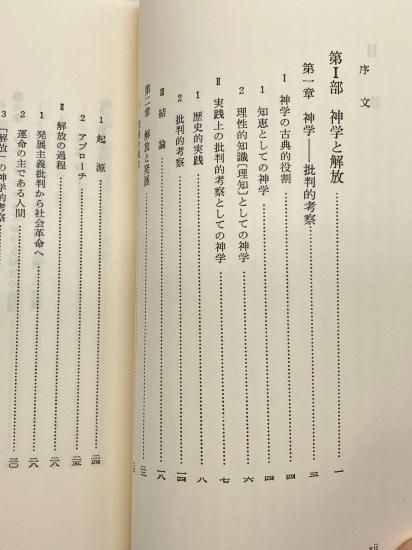 序文
第Ⅰ部 神学と解放……一
第一章 神学——批判的考察……三
Ⅰ 神学の古典的役割……四
1 知恵としての神学……四
2 理性的知識〔理知〕としての神学……六
Ⅱ 実践上の批判的考察としての神学……七
1 歴史的実践……八
2 批判的考察……一四
Ⅲ 結論……一八
第二章 解放と発展……二三
1 起源……二四
2 アプローチ……二五
Ⅱ 解放の過程……二八
1 発展主義批判から社会革命へ……二八
2 運命の主である人間……三〇
3 「解放」の神学的考察
xii